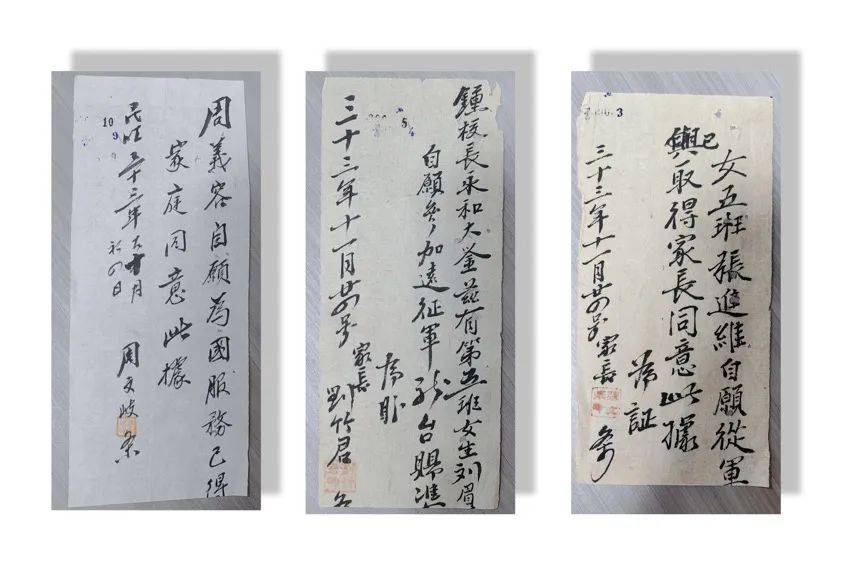 周義容自願為國服務已得
家庭同意此據
民國三十三年十月
初四日
周文岐条
10
9
鍾校長永和大鉴茲有第五班女生刘眉
自願參加遠征軍
台賜准
為盼
三十三年十一月廿四号
家長
劉竹君
5
女五班張進維自願從軍
已
取得家長同意此據
為証
三十三年十一月廿四号
家長
条
3